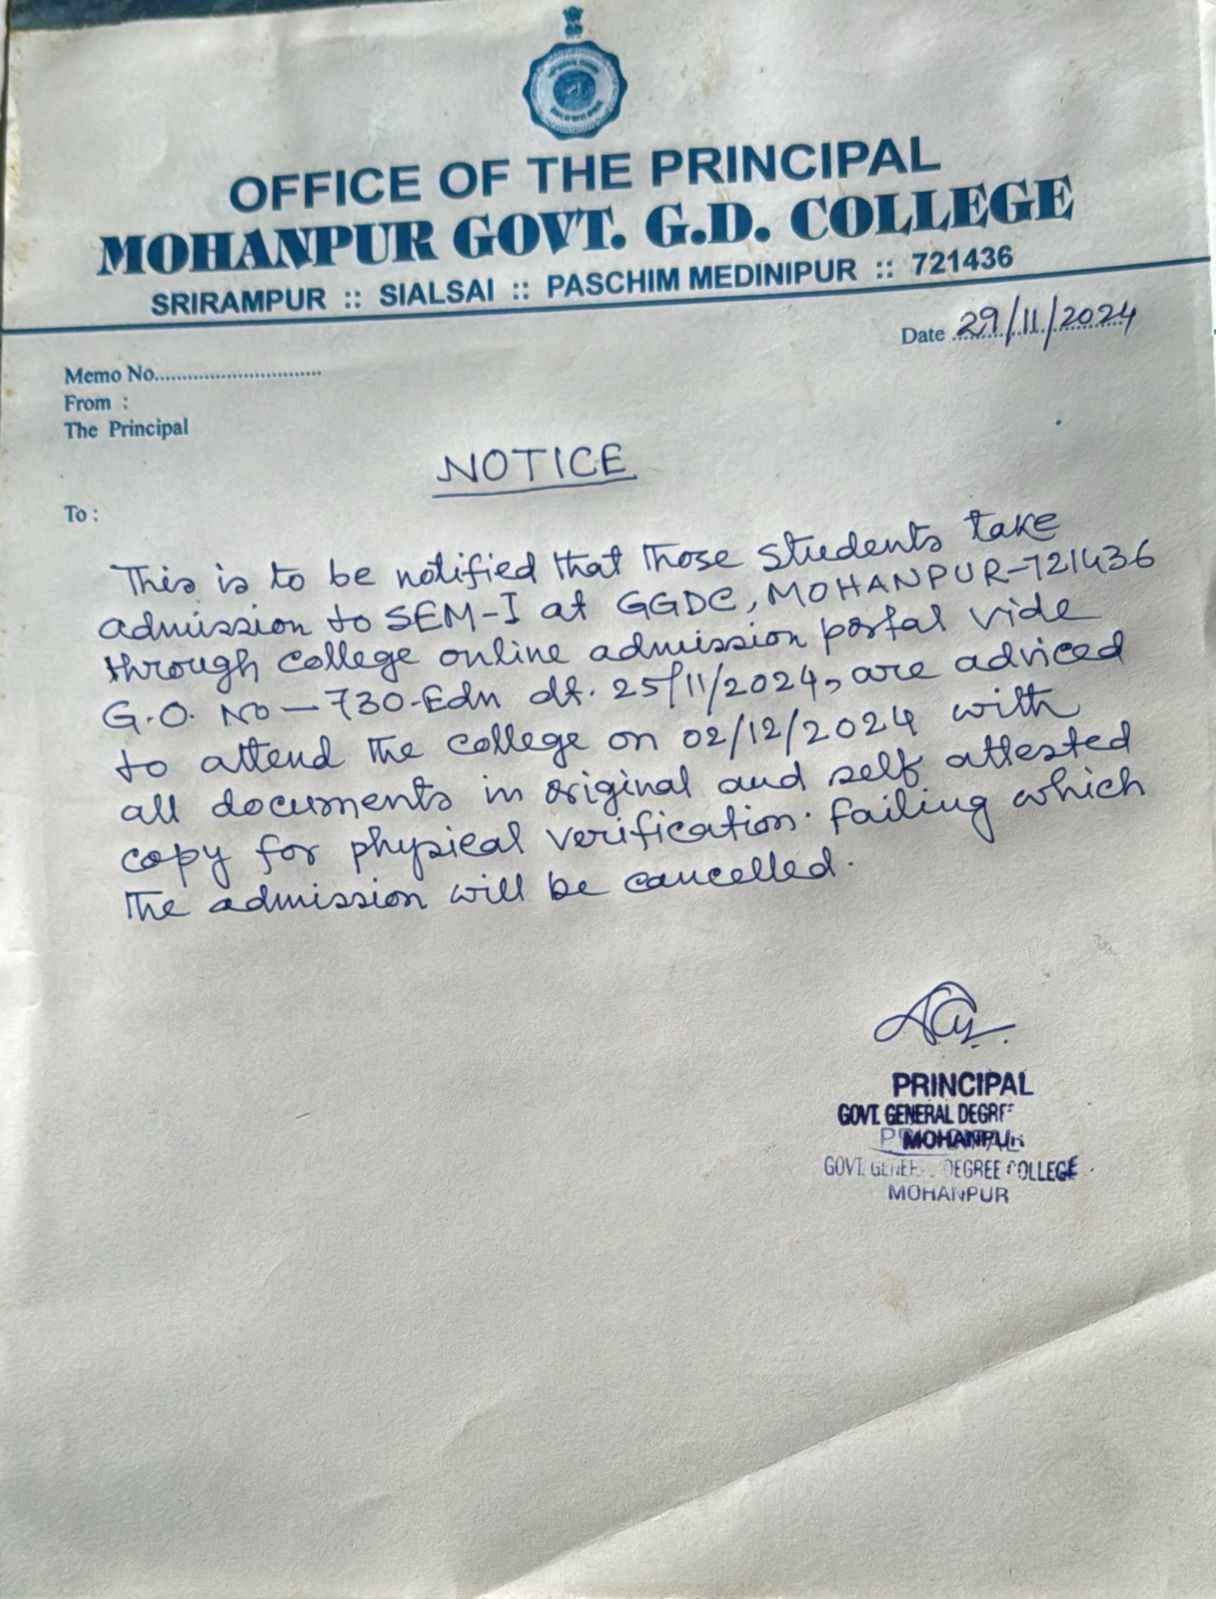 OFFICE OF THE PRINCIPAL
MOHANPUR GOVT. G.D. COLLEGE
SRIRAMPUR :: SIALSAI :: PASCHIM MEDINIPUR :: 721436
Date 29/11/2024
Memo No..............................
From :
The Principal
NOTICE
To :
This is to be notified that those students take
admission to SEM-I at GGDC, MOHANPUR-721436
through college online admission portal vide
G.O. No - 730-Edn dt. 25/11/2024, are adviced
to attend the college on 02/12/2024 with
all documents in original and self attested
copy for physical verification. Failing which
the admission will be cancelled.
PRINCIPAL
GOVT. GENERAL DEGRE
MOHANPUR
GOVT. GENER DEGREE COLLEGE
MOHANPUR